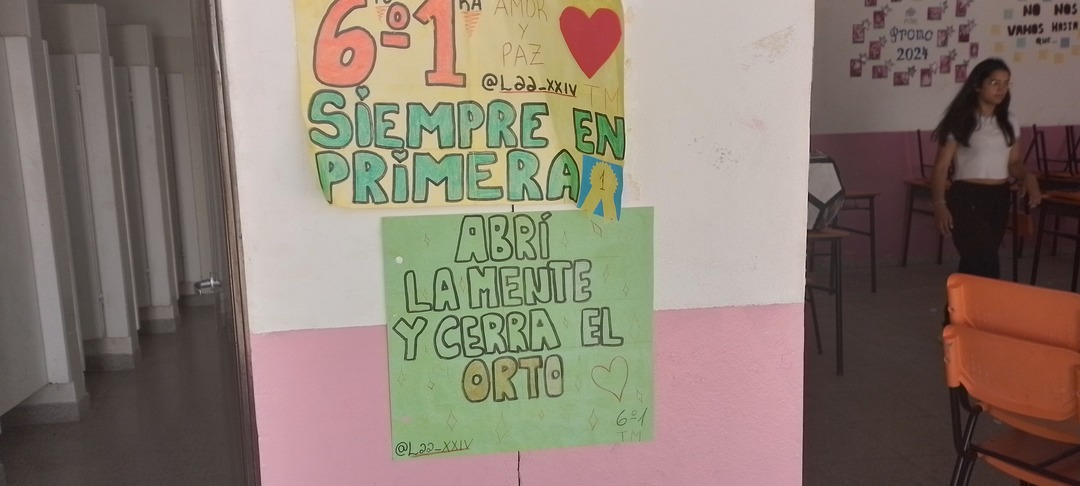 6º 1RA
AMOR
Y
PAZ
@L22_XXIV
TM
SIEMPRE EN
PRIMERA
1
ABRÍ
LA MENTE
Y CERRA EL
ORTO
6º1
TM
@L22_XXIV
Promo
2024
NO NOS
VAMOS HASTA
QUE...